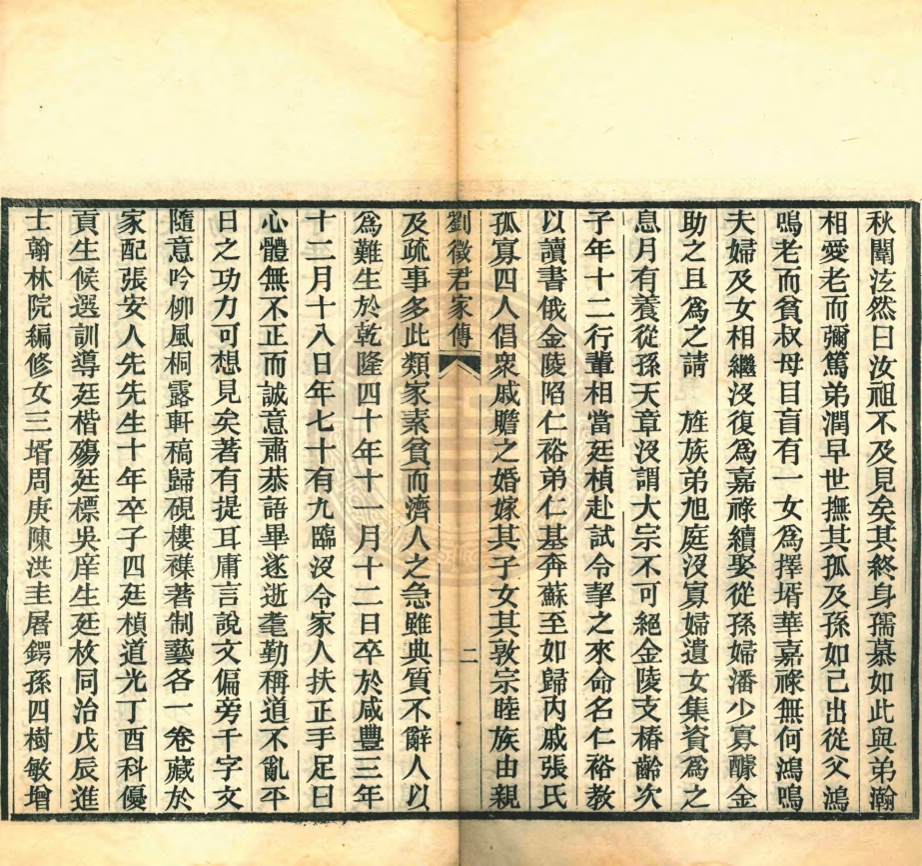 秋闈泫然曰汝祖不及見矣其終身孺慕如此與弟瀚
相愛老而彌篤弟潤早世撫其孤及孫如己出從父鴻
鳴老而貧叔母目盲有一女爲擇壻華嘉祿無何鴻鳴
夫婦及女相繼沒復爲嘉祿續娶從孫婦潘少寡醵金
助之且爲之請　旌族弟旭庭沒寡婦遺女集資爲之
息月有養從孫天章沒謂大宗不可絕金陵支椿齡次
子年十二行輩相當廷楨赴試令挈之來命名仁裕教
以讀書俄金陵陷仁裕弟仁基奔蘇至如歸內戚張氏
孤寡四人倡衆戚贍之婚嫁其子女其敦宗睦族由親
劉徵君家傳　二
及疏事多此類家素貧而濟人之急雖典質不辭人以
爲難生於乾隆四十年十一月十二日卒於咸豐三年
十二月十八日年七十有九臨沒令家人扶正手足曰
心體無不正而誠意肅恭語畢遂逝耄勤稱道不亂平
日之功力可想見矣著有提耳庸言說文偏旁千字文
隨意吟柳風桐露軒稿歸硯樓襍著制藝各一卷藏於
家配張安人先先生十年卒子四廷楨道光丁酉科優
貢生候選訓導廷楷殤廷標吳庠生廷枚同治戊辰進
士翰林院編修女三壻周庚陳洪圭屠鍔孫四樹敏增